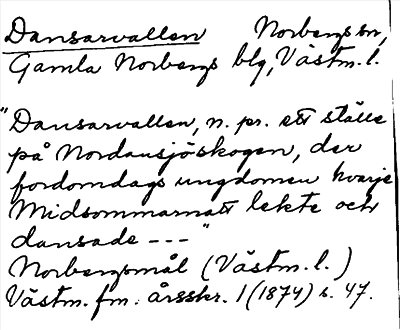 Dansarvallen Norbergs sn,
Gamla Norbergs blg, Västm. l.
"Dansarvallen, n. pr. ett ställe
på Nordansjöskogen, der
fordomdags ungdomen hvarje
Midsommarnatt lekte och
dansade - - - "
Norbergsmål (Västm. l.)
Västm. fm. årsskr. 1 (1874) s. 47.